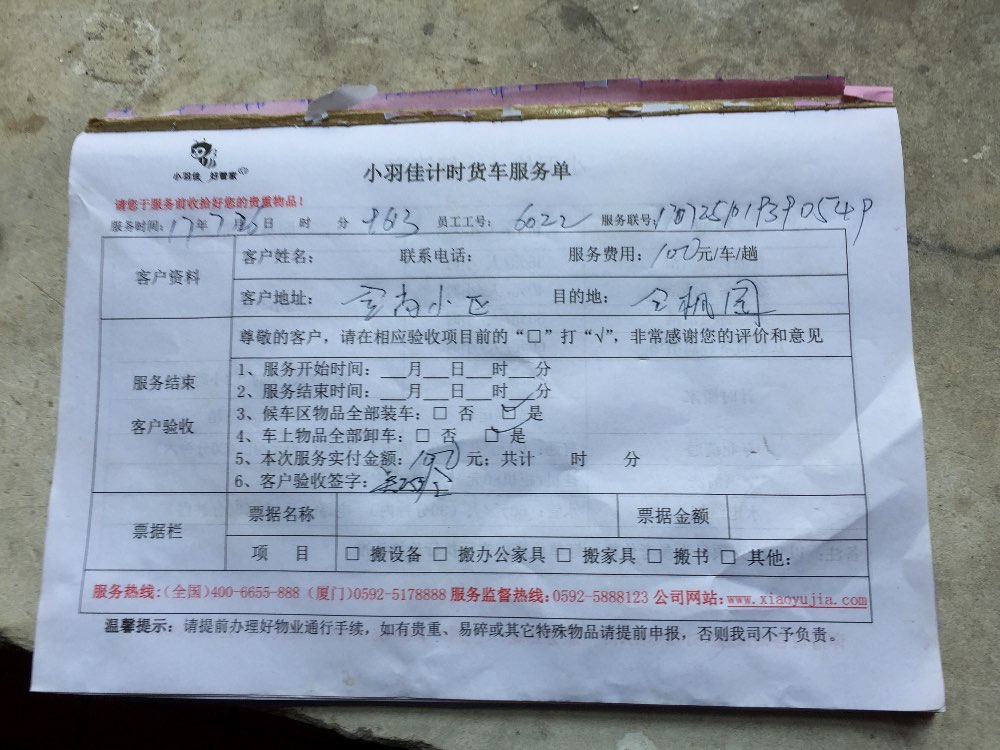 小羽佳 好管家
小羽佳计时货车服务单
请您于服务前收拾好您的贵重物品!
服务时间: 17年7月26日 时 分 员工工号: 6022 服务联号:
客户资料
客户姓名: 联系电话: 服务费用: 100元/车/趟
客户地址: 金尚小区 目的地:
尊敬的客户,请在相应验收项目前的“□”打“√”,非常感谢您的评价和意见
服务结束
客户验收
1、服务开始时间: ___月___日___时___分
2、服务结束时间: ___月___日___时___分
3、候车区物品全部装车: □ 否 ☑ 是
4、车上物品全部卸车: □ 否 ☑ 是
5、本次服务实付金额: 100元; 共计 时 分
6、客户验收签字:
票据栏
票据名称 票据金额
项 目 □ 搬设备 □ 搬办公家具 □ 搬家具 □ 搬书 □ 其他:
服务热线:(全国)400-6655-888 (厦门)0592-5178888 服务监督热线:0592-5888123 公司网站:www.xiaoyujia.com
温馨提示: 请提前办理好物业通行手续,如有贵重、易碎或其它特殊物品请提前申报,否则我司不予负责。